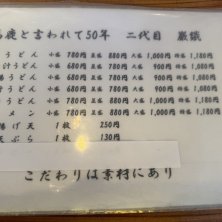 鹿と言われて50年 二代目 巌鉄
うどん 小盛 780円 並盛 880円 大盛 1,000円 特盛 1,180円
汁うどん 小盛 780円 並盛 880円 大盛 1,000円 特盛 1,180円
うどん 小盛 780円 並盛 880円 大盛 1,000円 特盛 1,180円
うどん 小盛 780円 並盛 880円 大盛 1,000円 特盛 1,180円
うどん 小盛 780円 並盛 880円 大盛 1,000円 特盛 1,180円
メン 小盛 780円 並盛 880円 大盛 1,000円 特盛 1,180円
揚げ天 1枚 250円
天ぷら 1枚 130円
こだわりは素材にあり